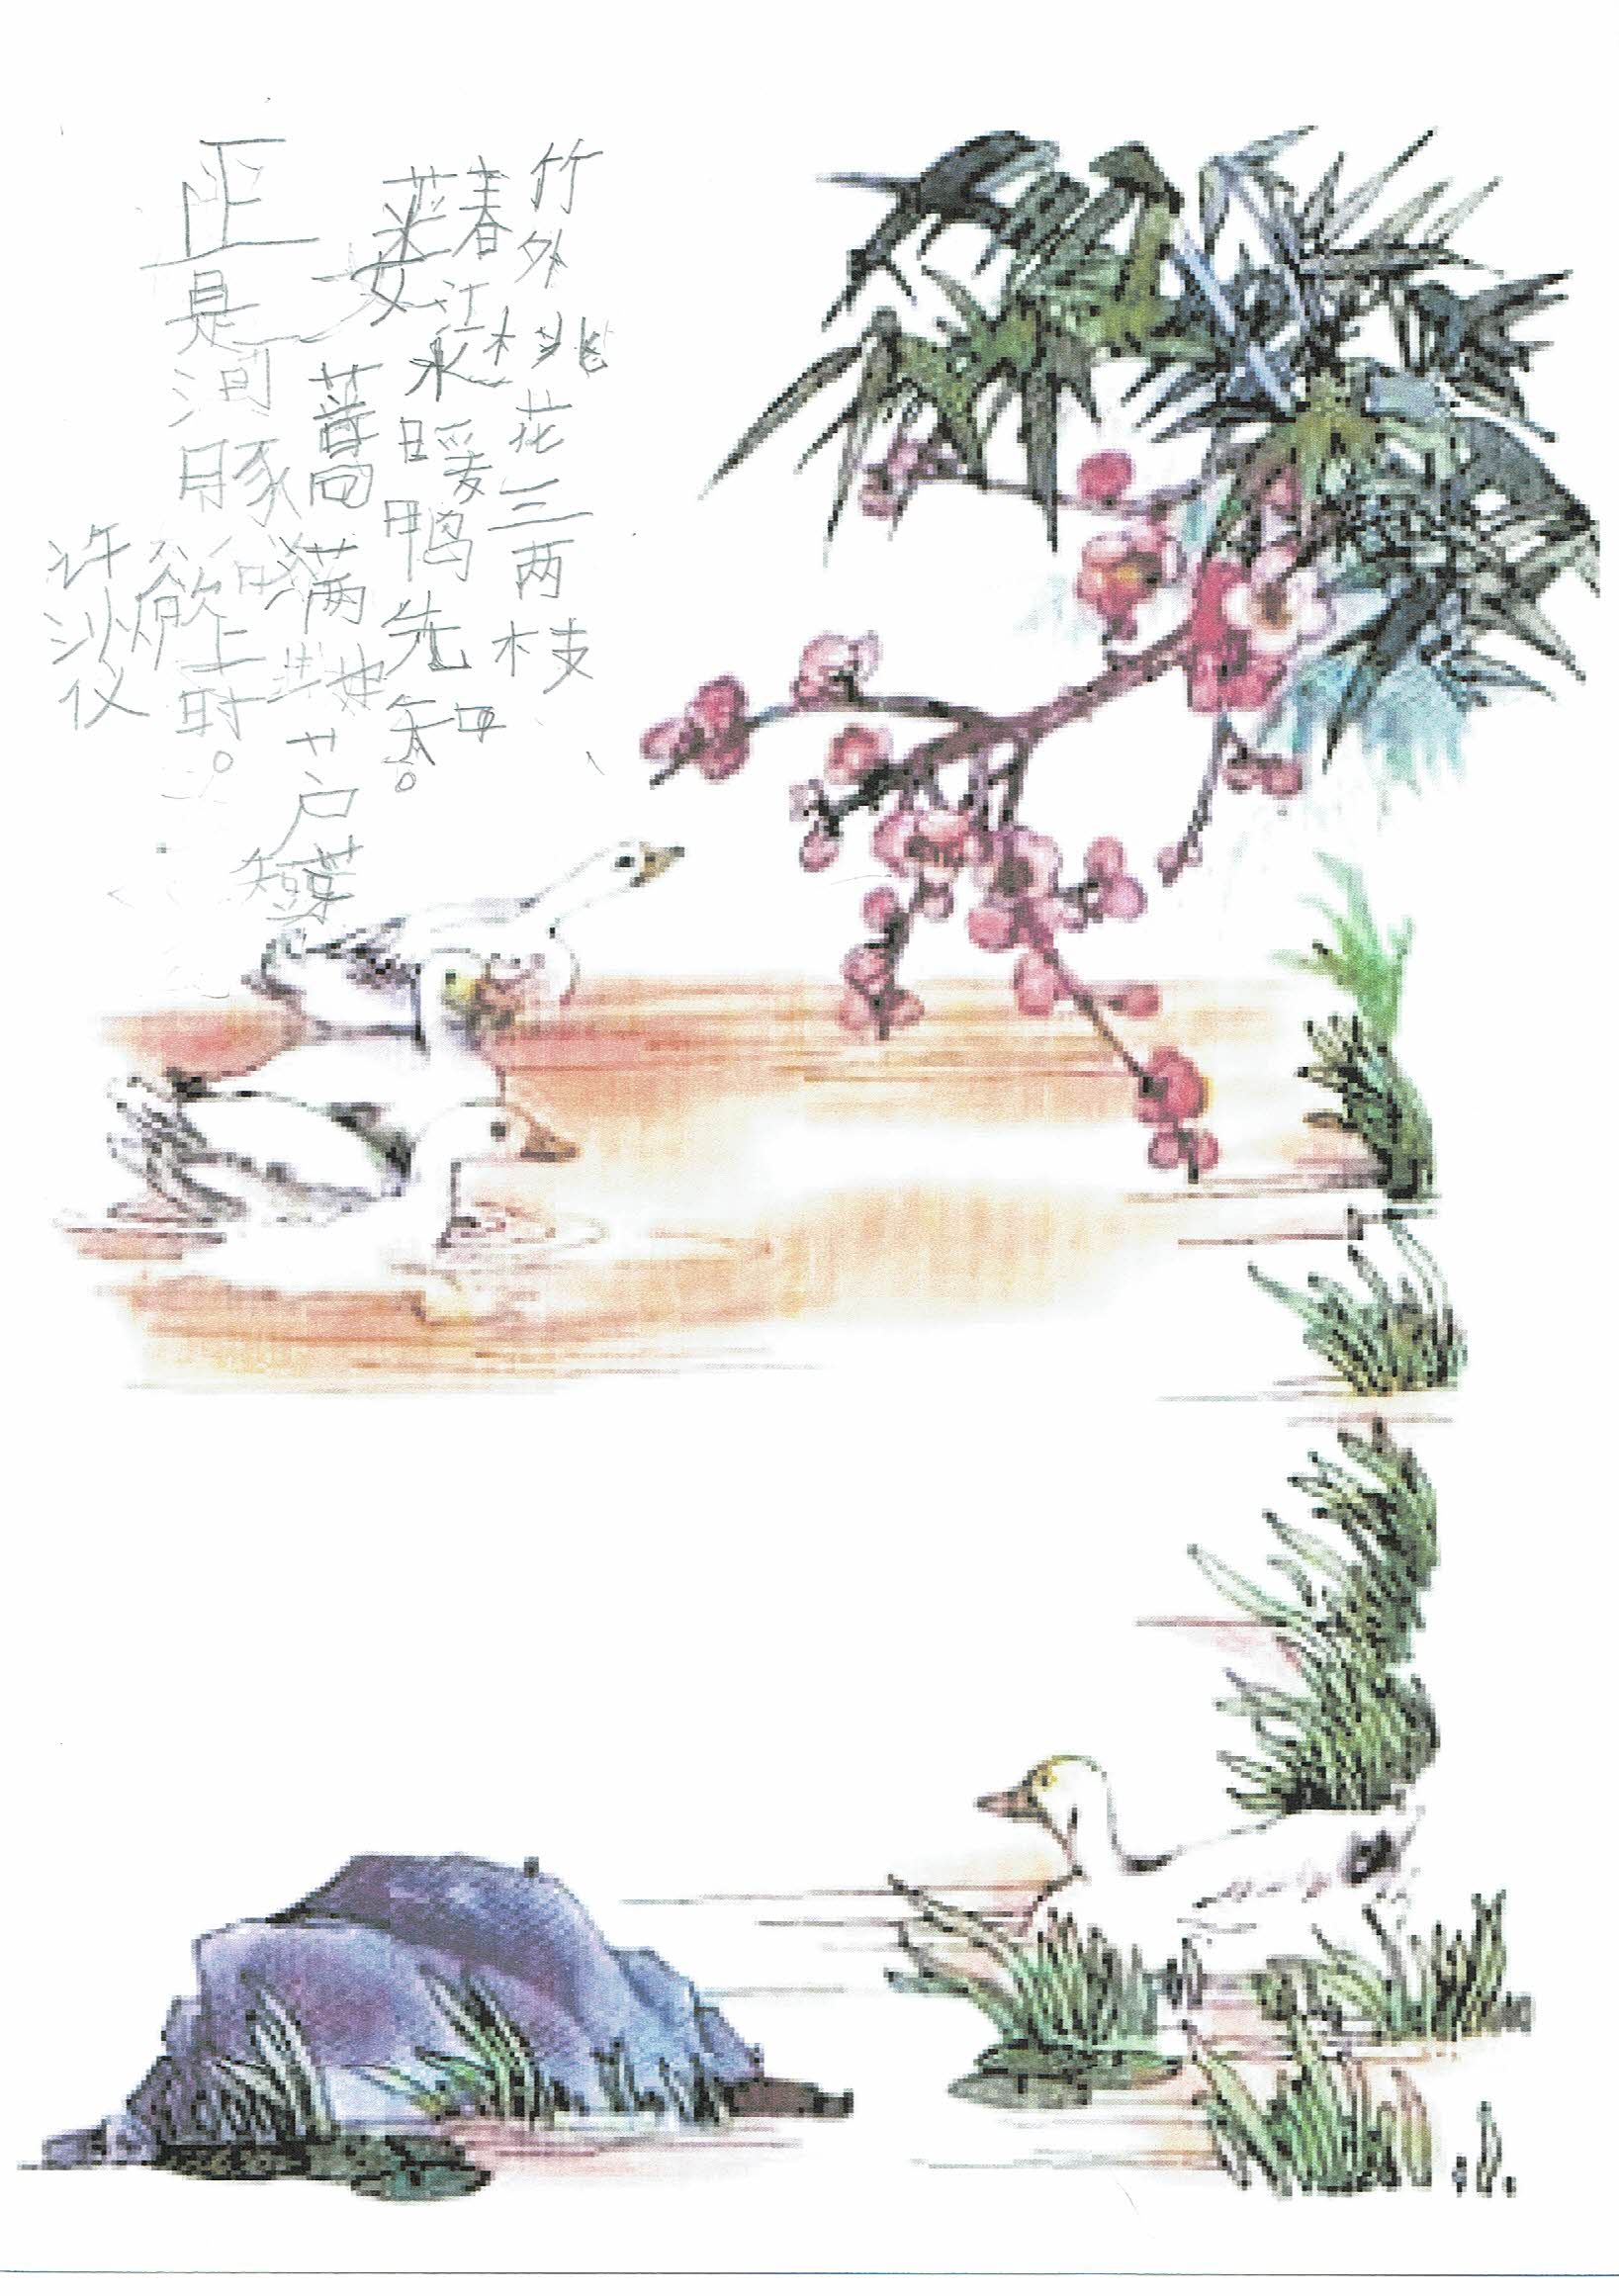 竹外桃花三两枝
春江水暖鸭先知。
蒌蒿满地芦短
正是河豚欲上时。
许沙仪